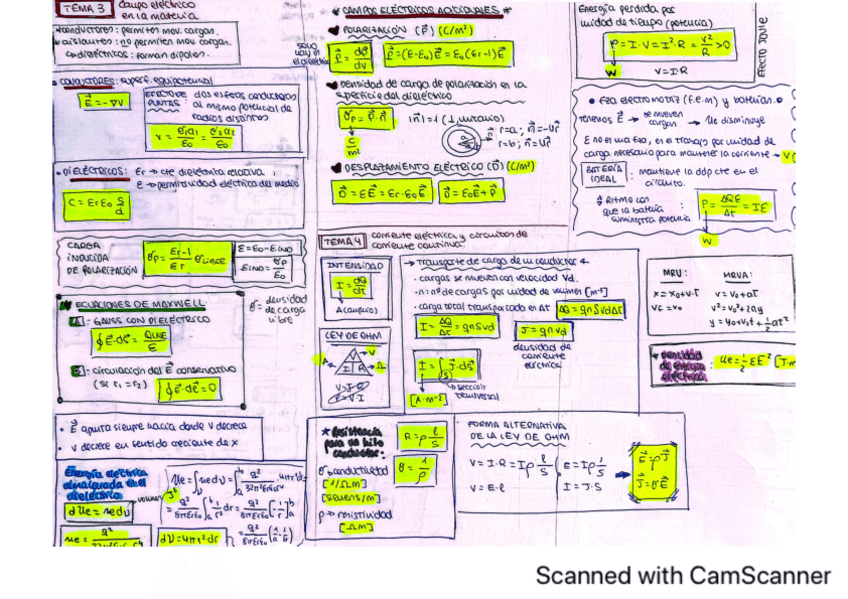 TEMA 3 campo eléctrico
en la materia
*conductores: permiten mov. cargas.
*aislantes: no permiten mov. cargas.
↳dieléctricos: forman dipolos.
• CONDUCTORES: superf. equipotencial
E⃗ = -∇V
EFECTO DE PUNTAS: dos esferas conductoras
al mismo potencial de
radios distintos
• DIELÉCTRICOS: Er → cte dieléctrica relativa
E → permitividad eléctrica del medio
C = ErE₀ S/d
CARGA
INDUCIDA
DE POLARIZACIÓN
σp = (Er-1)/Er σLIBRE
E = E₀ - EIND
EIND = σp/E₀
ECUACIONES DE MAXWELL
1 - GAUSS CON DIELÉCTRICO
2 - circulación del E⃗ conservativo
(si r₁ = r₂)
∮E⃗·dℓ⃗ = 0
σ = densidad
de carga
libre
• E⃗ apunta siempre hacia donde V decrece
• V decrece en sentido creciente de x
Energía eléctrica
almacenada en el
dieléctrico
volumen
dUe = ue dV
dV = 4πr²dr
* CAMPOS ELÉCTRICOS ADICIONALES *
POLARIZACIÓN (P⃗) (C/m²)
SOLO
P⃗ = dp⃗/dV
P⃗ = (E-E₀)E⃗ = E₀(Er-1)E⃗
Densidad de carga de polarización en la
superficie del dieléctrico
σp = P⃗·n⃗
|n⃗| = 1 (⊥, unitario)
r=a; n⃗ = -u⃗r
r=b; n⃗ = u⃗r
C/m²
DESPLAZAMIENTO ELÉCTRICO (D⃗) (C/m²)
D⃗ = EE⃗ = Er·E₀E⃗
D⃗ = E₀E⃗ + P⃗
TEMA 4 corriente eléctrica y circuitos de
corriente continua.
INTENSIDAD
I = dQ/dt
A (amperio)
LEY DE OHM
V
I R
V = I·R
→ Transporte de carga de un conductor
- cargas se mueven con velocidad Vd.
- n: nº de cargas por unidad de volumen [m⁻³]
- carga total transportada en ΔT ΔQ = qnSVdΔt
I = ΔQ/Δt = qnSVd
J = qnVd
densidad de
corriente
eléctrica
I = ∫J⃗·dS⃗
sección
transversal
[A·m⁻²]
* Resistencia
para un hilo
conductor:
R = ρ ℓ/S
σ → conductividad
[1/Ωm]
[siemens/m]
σ = 1/ρ
ρ → resistividad
[Ωm]
FORMA ALTERNATIVA
DE LA LEY DE OHM
V = I·R = Iρ ℓ/S
E = Iρ 1/S
V = E·ℓ
I = J·S
E⃗ = ρJ⃗
J⃗ = σE⃗
Energía perdida por
unidad de tiempo (potencia)
P = I·V = I²·R = V²/R > 0
W
V = I·R
EFECTO JOULE
• Fza electromotriz (f.e.m) y baterías. •
tenemos E⃗ → se mueven
cargas → Ue disminuye
E no es una fza, es el trabajo por unidad de
carga necesario para mantener la corriente → V
BATERÍA
IDEAL : mantiene la ddp cte en el
circuito.
Ritmo con
que la batería
suministra potencia
P = ΔQE/Δt = IE
W
MRU:
x = x₀ + v·T
MRUA:
v = v₀ + aT
v² = v₀² + 2ay
y = y₀ + v₀t + ½at²
* Densidad
de energía
eléctrica:
Ue = ½EE²
Scanned with CamScanner